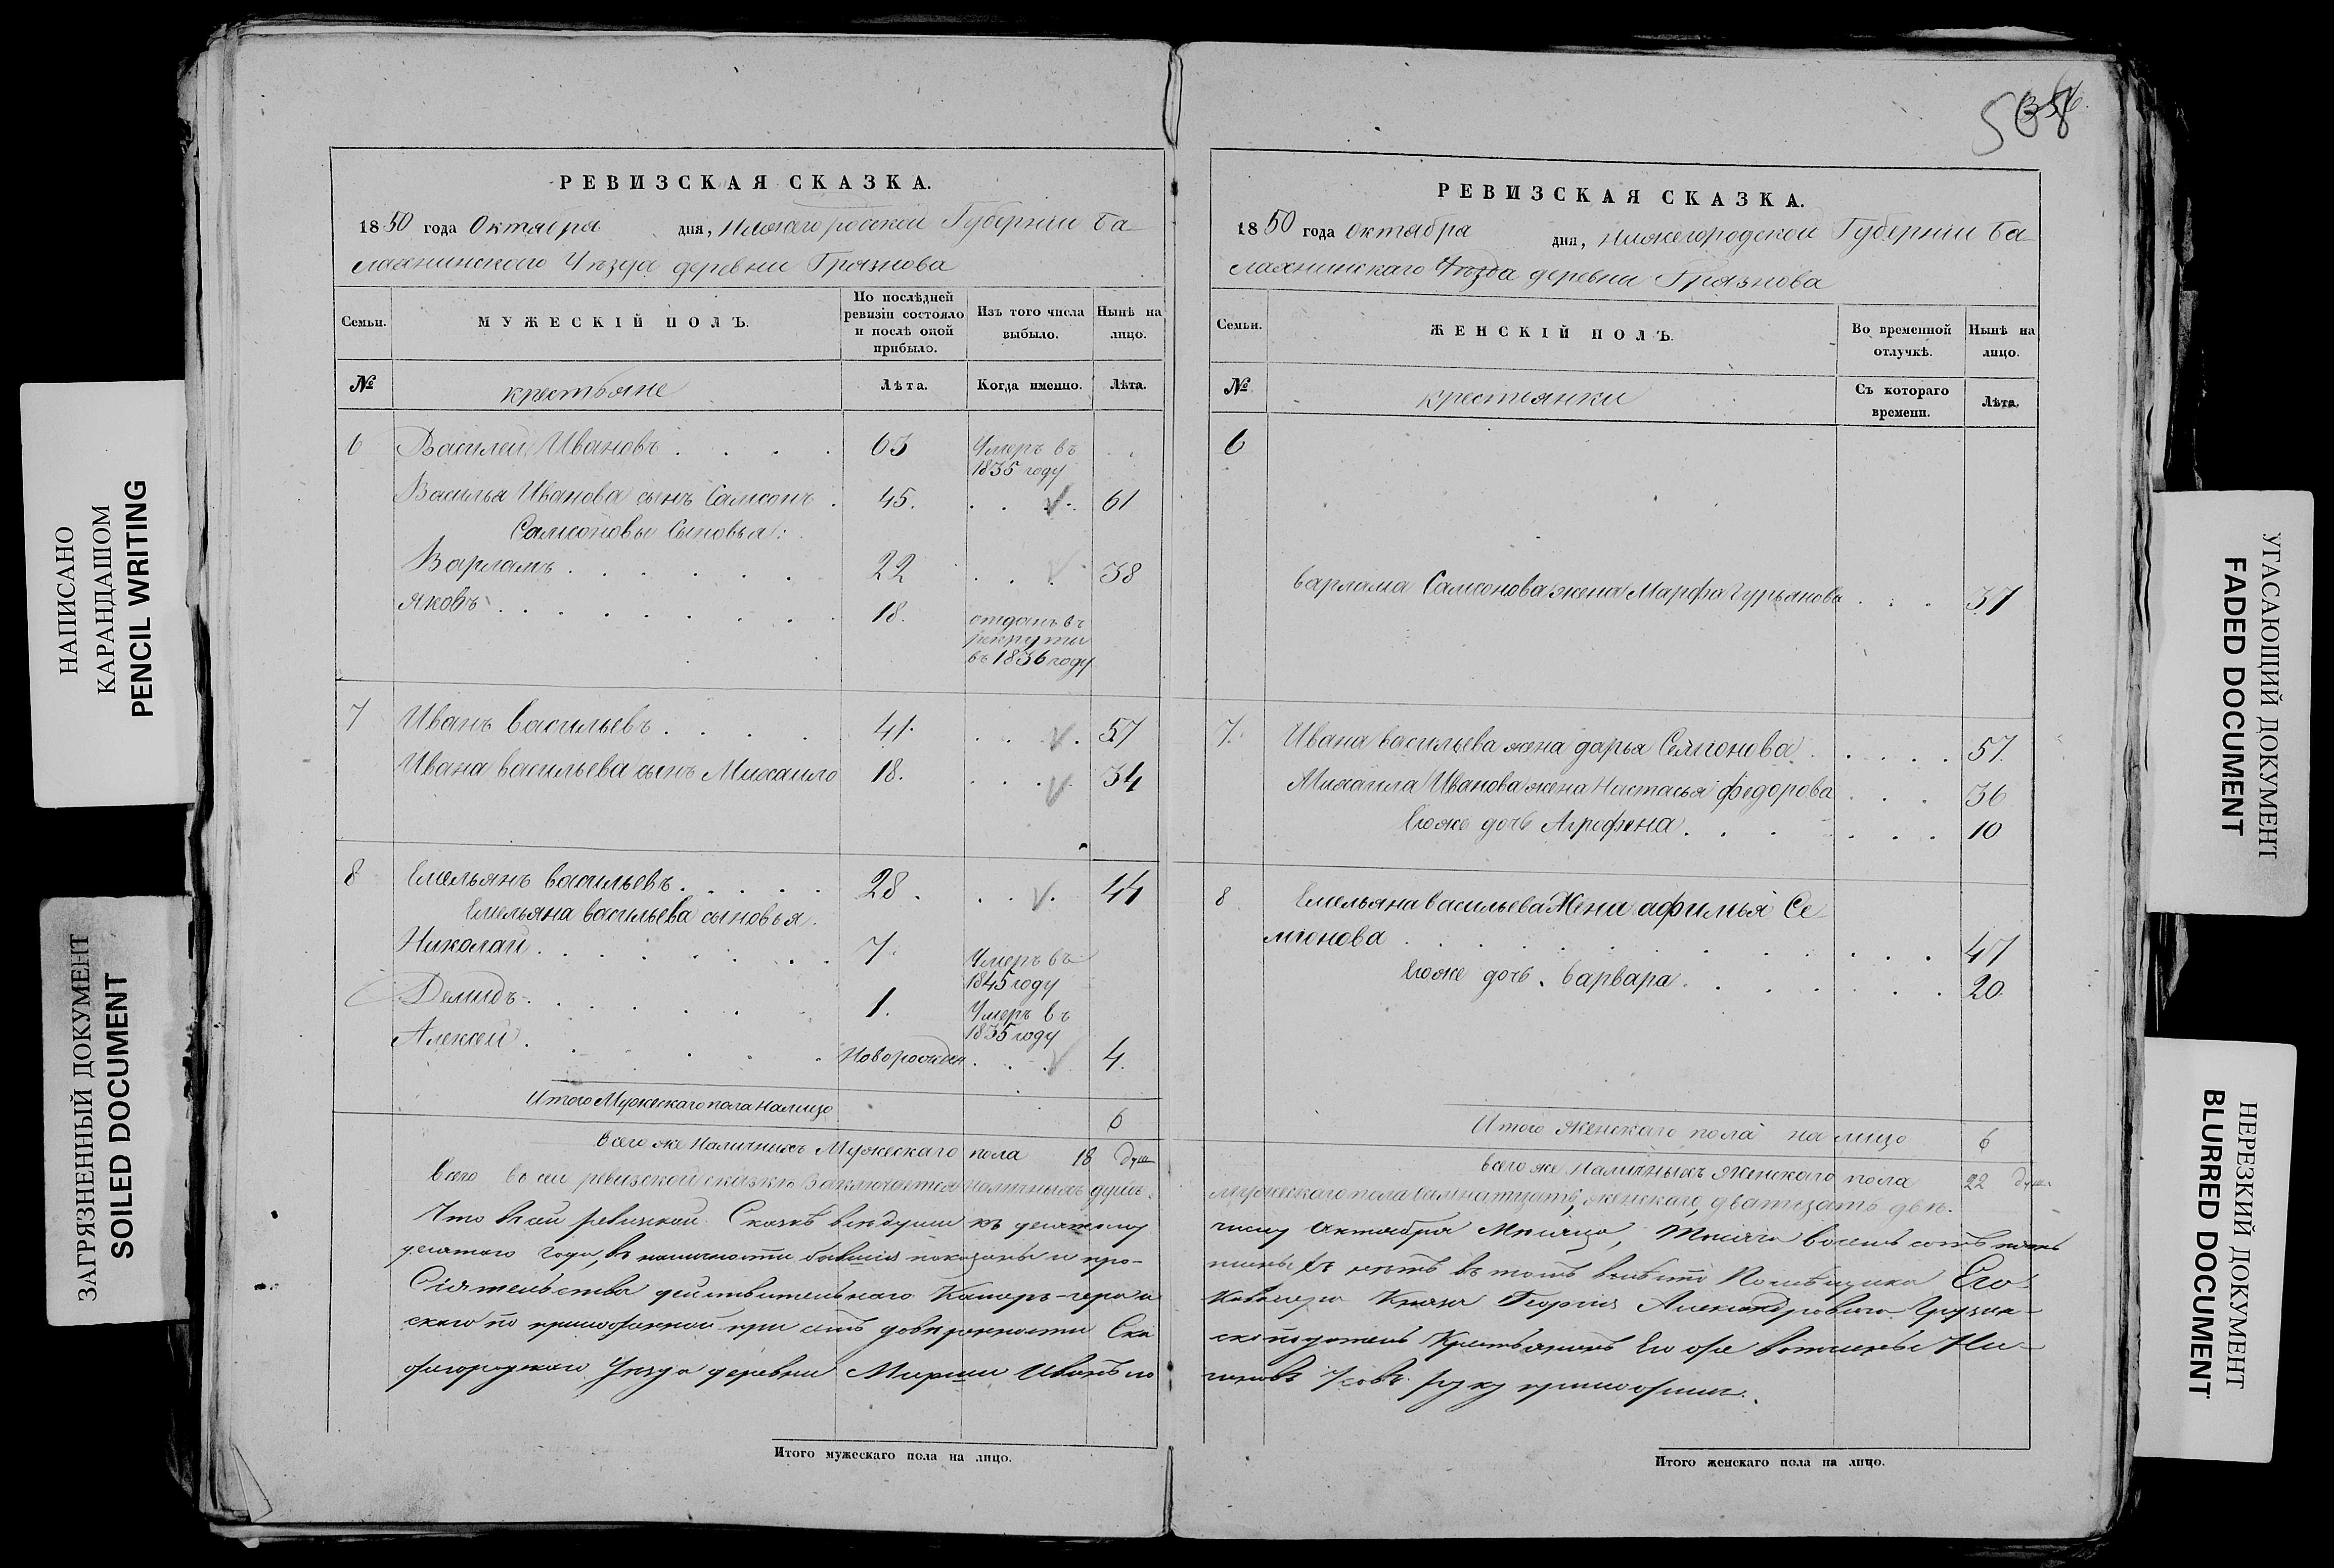 РЕВИЗСКАЯ СКАЗКА.
1850 года Октября дня, Нижегородской Губерніи Ба-
лахнинскаго Уѣзда деревни Грязнова
Семьи. МУЖЕСКІЙ ПОЛЪ. По послѣдней ревизіи состояло и послѣ оной прибыло. Изъ того числа выбыло. Нынѣ на лицо.
№ крестьяне Лѣта. Когда именно. Лѣта.
6 Василей Ивановъ 63 Умеръ въ
1835 году
Василья Иванова сынъ Самсонъ 45. 61
Самсоновы Сыновья:
Варламъ 22 38
Яковъ 18. отданъ въ
рекруты
въ 1836 году
7 Иванъ Васильевъ 41. 57
Ивана Васильева сынъ Михаило 18. 34
8 Емельянъ Васильевъ 28. 44
Емельяна Васильева сыновья.
Николай 7. Умеръ въ
1845 году
Демидъ 1. Умеръ въ
1835 году
Алексей Новорожден. 4.
Итого Мужескаго пола налицо 6
Всего же Наличныхъ Мужескаго пола 18 душ
Всего въ сей ревизской сказкѣ Заключается наличныхъ душъ
Что въ сей ревизской Сказкѣ всѣ души къ десятому
десятаго года, въ наличности бывшія показаны и про-
Сіятельства действительнаго Камеръ-гера и
скаго по приложенной при семъ довѣренности Ска
жегородскаго Уѣзда деревни Иванъ
Итого мужескаго пола на лицо.
568
РЕВИЗСКАЯ СКАЗКА.
1850 года Октября дня, Нижегородской Губерніи Ба-
лахнинскаго Уѣзда деревни Грязнова
Семьи. ЖЕНСКІЙ ПОЛЪ. Во временной отлучкѣ. Нынѣ на лицо.
№ крестьянки Съ котораго времени. Лѣта.
6
Варлама Самсонова жена Марфа Гурьянова 37
7. Ивана Васильева жена дарья Семионова 57.
Михаила Иванова жена Настасья федорова 36
Еюже дочь Агрофена 10
8 Емельяна Васильева Жена афимья Се
мионова 47
Еюже дочь Варвара 20.
Итого женскаго пола на лицо 6
Всего же Наличныхъ Женскаго пола 22 душ.
Мужескаго пола восмнатцать, женскаго, дватцать двѣ.
числу Октября Мѣсяца, Тысяча восемь сотъ
въ томъ Помѣщика Его
Кавалера Князя Георгія Александровича Грузин-
Крестьянинъ Его же вотчины Ни-
руку приложилъ.
Итого женскаго пола на лицо.
НАПИСАНО
КАРАНДАШОМ
PENCIL WRITING
ЗАГРЯЗНЕННЫЙ ДОКУМЕНТ
SOILED DOCUMENT
УГАСАЮЩИЙ ДОКУМЕНТ
FADED DOCUMENT
НЕРЕЗКИЙ ДОКУМЕНТ
BLURRED DOCUMENT